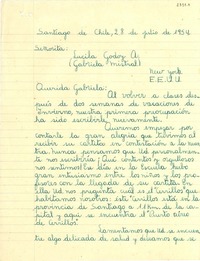 Santiago de Chile, 28 de julio de 1954
Señorita:
Lucila Godoy A.
(Gabriela Mistral)
New York
E.E.U.U
Querida Gabriela:
Al volver a clases des-
pués de dos semanas de vacaciones de
invierno, nuestra primera preocupación
ha sido escribirle, nuevamente.
Queremos empezar por
contarle la gran alegría que tuvimos al
recibir su cartita en contestación a la nues-
tra. Nunca pensamos que Ud. personalmen-
te nos escribiría; Así contentos y orgullosos
nos sentimos! Ese día en la Escuela hubo
gran entusiasmo entre los niños y los pro-
fesores con la llegada de su cartita. En
ella Ud. nos pregunta cuál es el "Cerrillos" que
habitamos nosotros: este "Cerrillos" está en la
provincia de Santiago a 11 Km. de la ca-
pital y aquí se encuentra el "Puerto aéreo
de Cerrillos".
Lamentamos que Ud. se encuen-
tre algo delicada de salud y deseamos que se